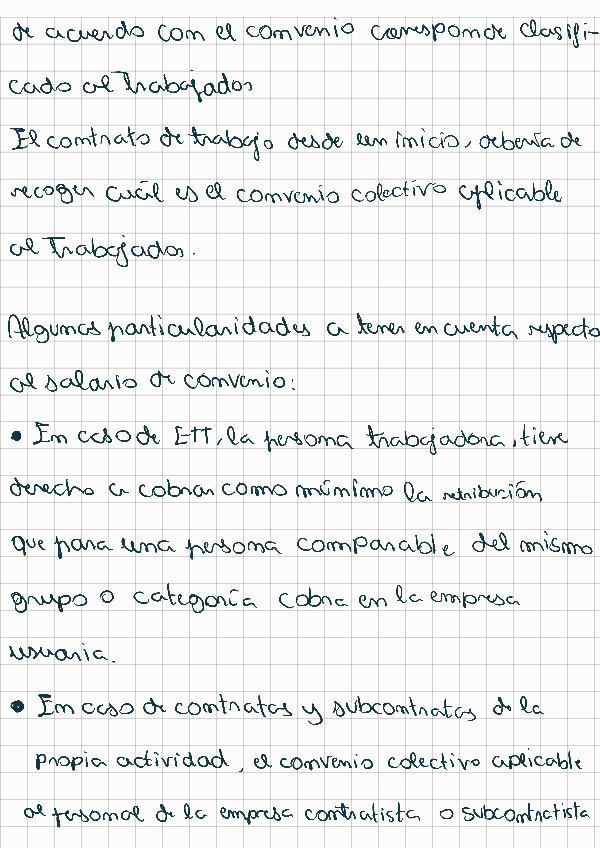 de acuerdo con el convenio corresponde clasifi-
cado al Trabajador
El contrato de trabajo desde un inicio, debería de
recoger cuál es el convenio colectivo aplicable
al Trabajador.
Algunas particularidades a tener en cuenta respecto
al salario de convenio:
• En caso de ETT, la persona trabajadora, tiene
derecho a cobrar como mínimo la retribución
que para una persona comparable del mismo
grupo o categoría cobra en la empresa
usuaria.
• En caso de contratas y subcontratas de la
propia actividad, el convenio colectivo aplicable
al personal de la empresa contratista o subcontratista